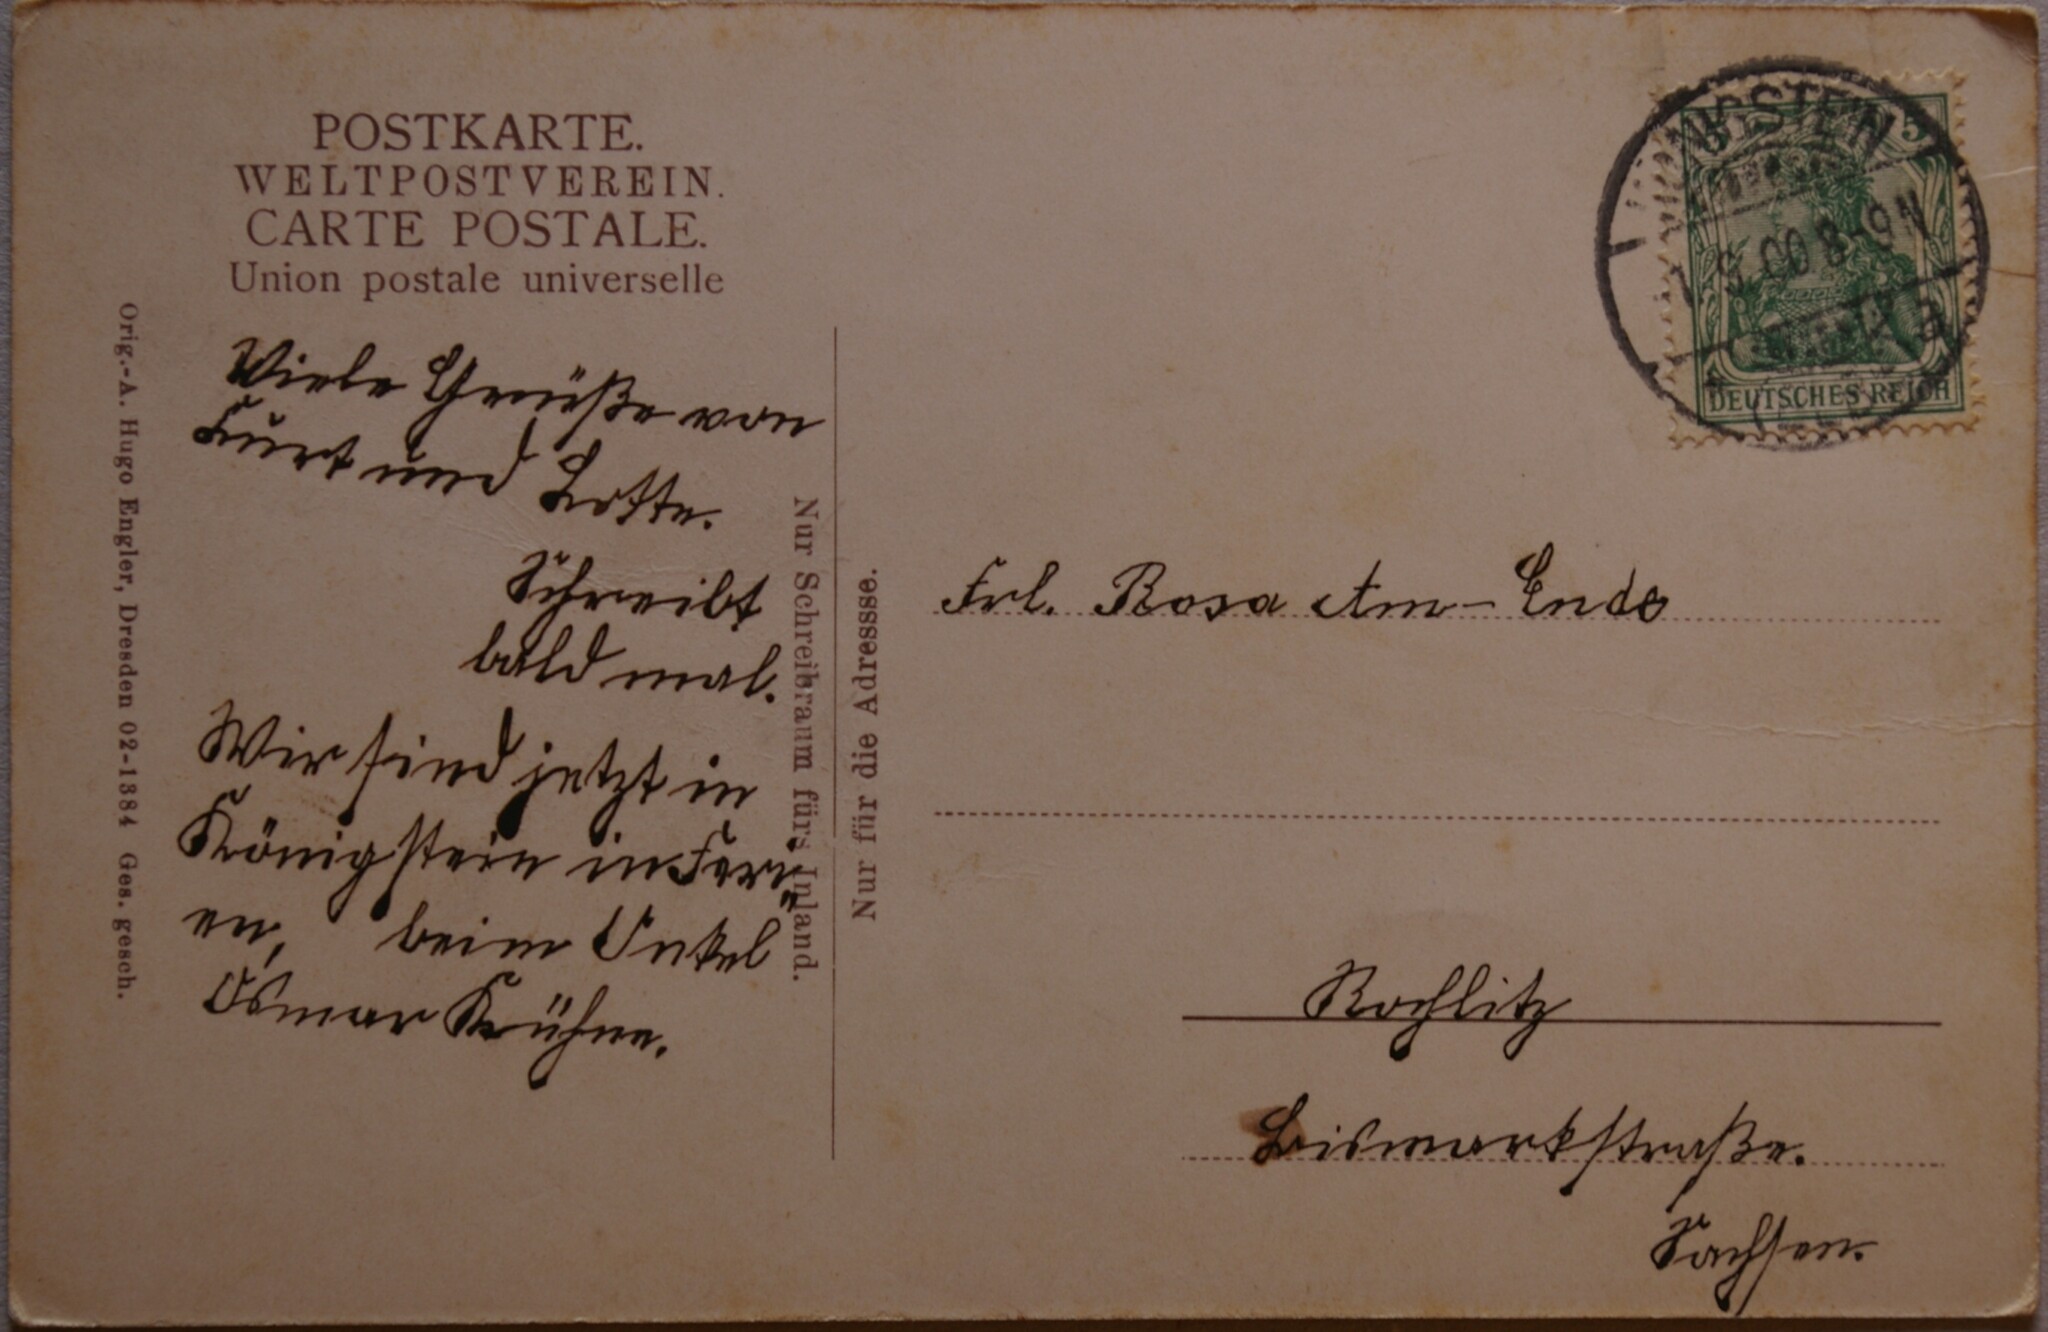 POSTKARTE.
WELTPOSTVEREIN.
CARTE POSTALE.
Union postale universelle
Viele Grüße von
Kurt und Lotte.
Schreibt
bald mal.
Wir sind jetzt in
Königstein in Feri⸗
en, beim Onkel
Osmar Kühne.
Orig.-A. Hugo Engler, Dresden 02-1384 Ges. gesch.
Nur Schreibraum fürs Inland.
Nur für die Adressse.
5
8-9 N
DEUTSCHES REICH
Frl. Rosa Am-Ende
Rochlitz
Bismarkstraße.
Sachsen.